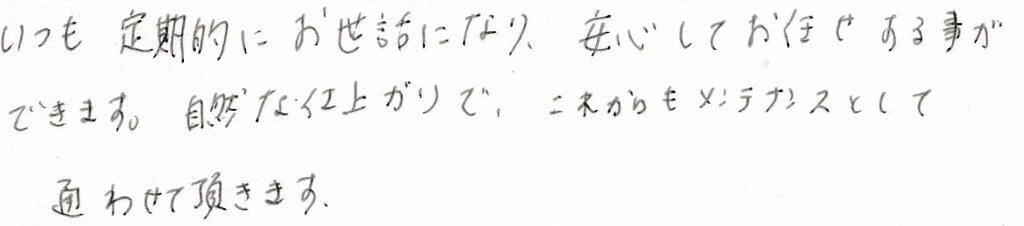 いつも 定期的に お世話になり、安心してお任せする事が
できます。自然な仕上がりで、これからもメンテナンスとして
通わせて頂きます。